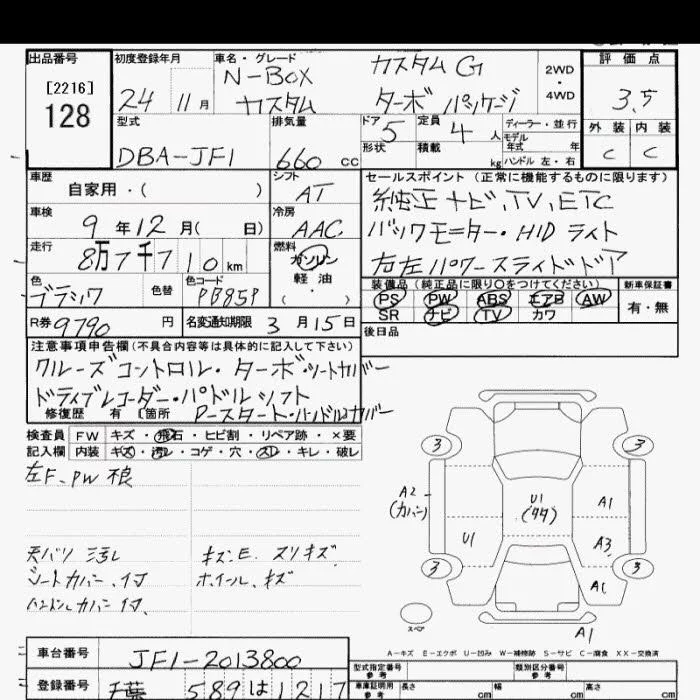 出品番号 初度登録年月 車名・グレード 評価点
[2216]
128
24 11月
N-BOX カスタムG
カスタム ターボ パッケージ
2WD・4WD
3.5
型式 排気量 ドア 定員 ディーラー・並行
DBA-JF1 660cc 5 4人
形状 積載 kg モデル年式 年 ハンドル 左・右
外装 内装
C C
車歴 シフト セールスポイント(正常に機能するものに限ります)
自家用・( ) AT
純正ナビ,TV,ETC
車検 冷房
9年12月( 日) AAC
バックモニター・HIDライト
走行 燃料
8万7千710km ガソリン・軽油・( )
左右パワースライドドア
色 色替 色コード
ブラック PB85P
装備品(純正品に限り○をつけてください) 新車保証書
PS PW ABS エアB AW 有・無
SR ナビ TV カワ
R券 9790円 名変通知期限 3月15日
後日品
注意事項申告欄(不具合内容等は具体的に記入して下さい)
クルーズコントロル・ターボ・シートカバー
ドライブレコーダー・パドルシフト
修復歴 有 〔箇所 Pースタート・ハンドルカバー
検査員 FW キズ・飛石・ヒビ割・リペア跡・×要
記入欄 内装 キズ・汚レ・コゲ・穴・スレ・キレ・破レ
左F、PW 不良
天バリ 汚レ キズ、E、スリキズ
シートカバー、イマ ホイール、キズ
ハンドルカバー イマ、
3 3
A2
(カバー)
U1
(タタ)
A1
U1
A3
3 3
A1
スペア
A1
A-キズ E-エクボ U-凹み W-補修跡 S-サビ C-腐食 XX-交換済
車台番号 JF1-2013800
型式指定番号 参考 類別区分番号 参考
登録番号 千葉 589 は 1217
車庫証明用 参考 長さ cm 幅 cm 高さ cm